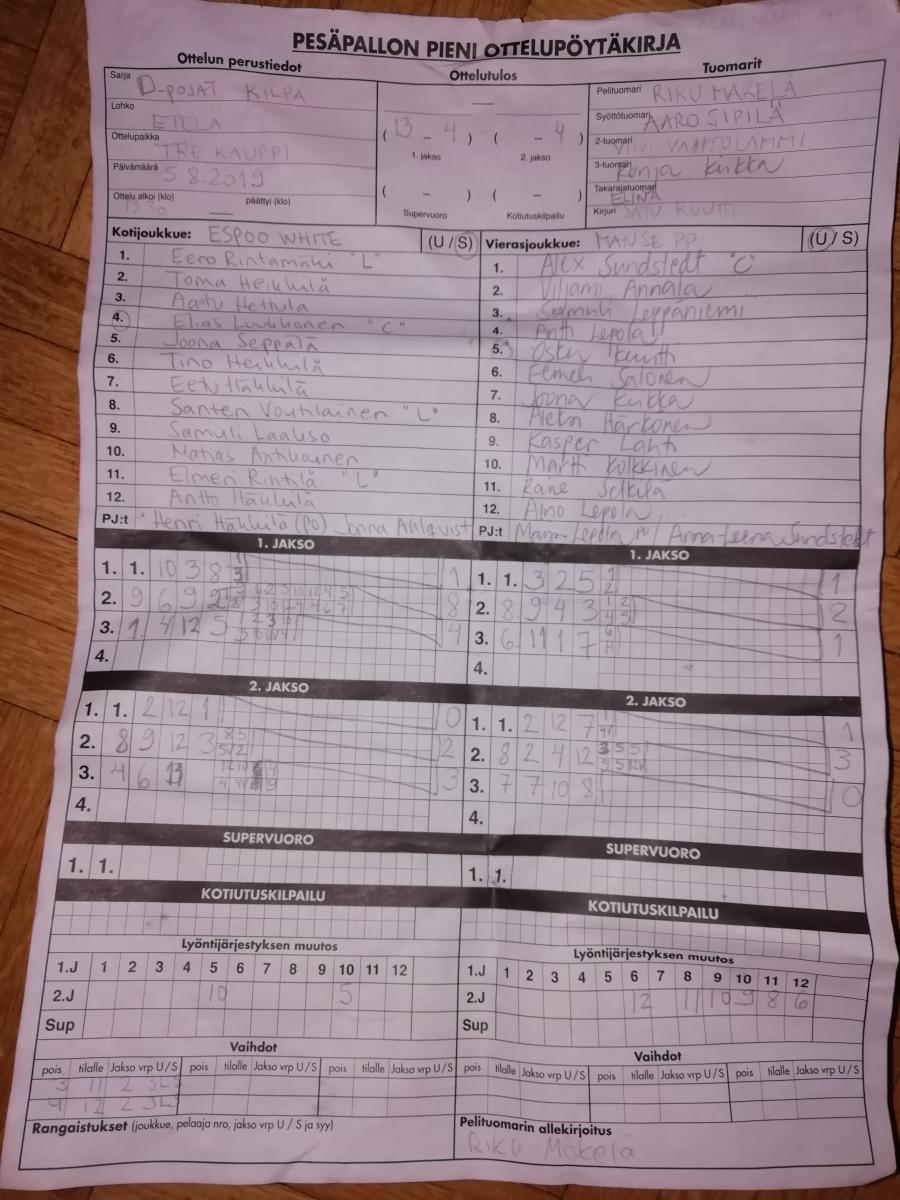 PESÄPALLON PIENI OTTELUPÖYTÄKIRJA
Ottelun perustiedot
Ottelutulos
Tuomarit
Sarja D-POJAT KILPA
Lohko ETELÄ
Ottelupaikka TRE KAUPPI
Päivämäärä 5.8.2019
Ottelu alkoi (klo) päättyi (klo)
—
( 13 - 4 ) ( - 4 )
1. jakso 2. jakso
( - ) ( - )
Supervuoro Kotiutuskilpailu
Pelituomari RIKU MÄKELÄ
Syöttötuomari AARO SIPILÄ
2-tuomari VIIVI
3-tuomari Ronja Kukka
Takarajatuomari ELINA
Kirjuri SATU KUUTTI
Kotijoukkue: ESPOO WHITE (U / S)
1. Eero Rintamäki "L"
2. Toma Heikkilä
3. Aatu Hettula
4. Elias Luukkonen "C"
5. Joona Seppälä
6. Tino Heikkilä
7. Eetu Häkkilä
8. Santeri Voutilainen "L"
9. Samuli Laakso
10. Matias Antikainen
11. Elmeri Rintilä "L"
12. Antto Häkkilä
PJ:t Henri Häkkilä (PO) Jonna Ahlqvist
Vierasjoukkue: MANSE PP (U / S)
1. Alex Sundstedt "C"
2. Viljami Annala
3. Samuli Leppäniemi
4. Antti Lepola
5. Osku Kuutti
6. Eemeli Salonen
7. Joona Kukka
8. Aleksi Härkönen
9. Kasper Lahti
10. Martti Kolkkinen
11. Raine Selkilä
12. Aino Lepola
PJ:t Lepola / Anna-Leena Sundstedt
1. JAKSO
1. 1. 10 3 8 1
2. 9 6 9 2 8
3. 1 4 12 5 4
4.
1. JAKSO
1. 1. 3 2 5 1
2. 8 9 4 3 2
3. 6 11 1 7 1
4.
2. JAKSO
1. 1. 2 12 1 0
2. 8 9 12 3 2
3. 4 6 11 3
4.
2. JAKSO
1. 1. 2 12 7 1
2. 8 2 4 12 3
3. 7 7 10 8 0
4.
SUPERVUORO
1. 1.
SUPERVUORO
1. 1.
KOTIUTUSKILPAILU
KOTIUTUSKILPAILU
Lyöntijärjestyksen muutos
1.J 1 2 3 4 5 6 7 8 9 10 11 12
2.J 10 5
Sup
Lyöntijärjestyksen muutos
1.J 1 2 3 4 5 6 7 8 9 10 11 12
2.J 12 11 10 9 8 6
Sup
Vaihdot
pois tilalle Jakso vrp U / S pois tilalle Jakso vrp U / S pois tilalle Jakso vrp U / S
3 11 2 3LS
4 12 2 3LS
Vaihdot
pois tilalle Jakso vrp U / S pois tilalle Jakso vrp U / S pois tilalle Jakso vrp U / S
Rangaistukset (joukkue, pelaaja nro, jakso vrp U / S ja syy)
Pelituomarin allekirjoitus
Riku Mäkelä